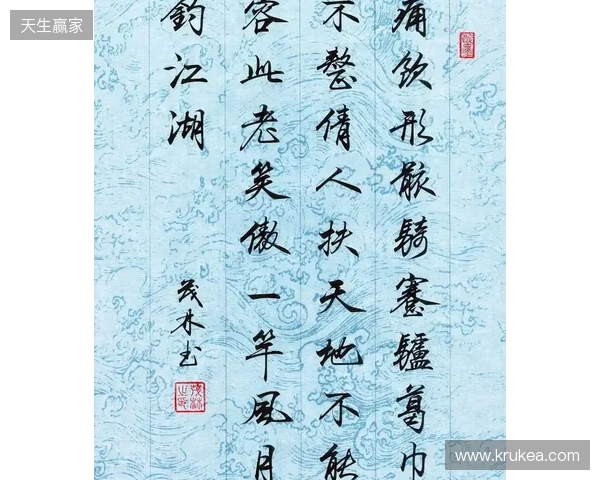 天生赢家
痛饮形骸骑蹇驴葛巾
不整倩人扶天地不能
容此老笑傲一竿风月
钓江湖
茂林书
www.krukea.com